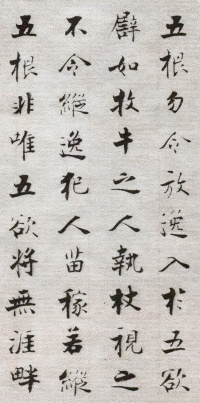 五根勿令放逸入於五欲
譬如牧牛之人執杖視之
不令縱逸犯人苗稼若縱
五根非唯五欲將無涯畔